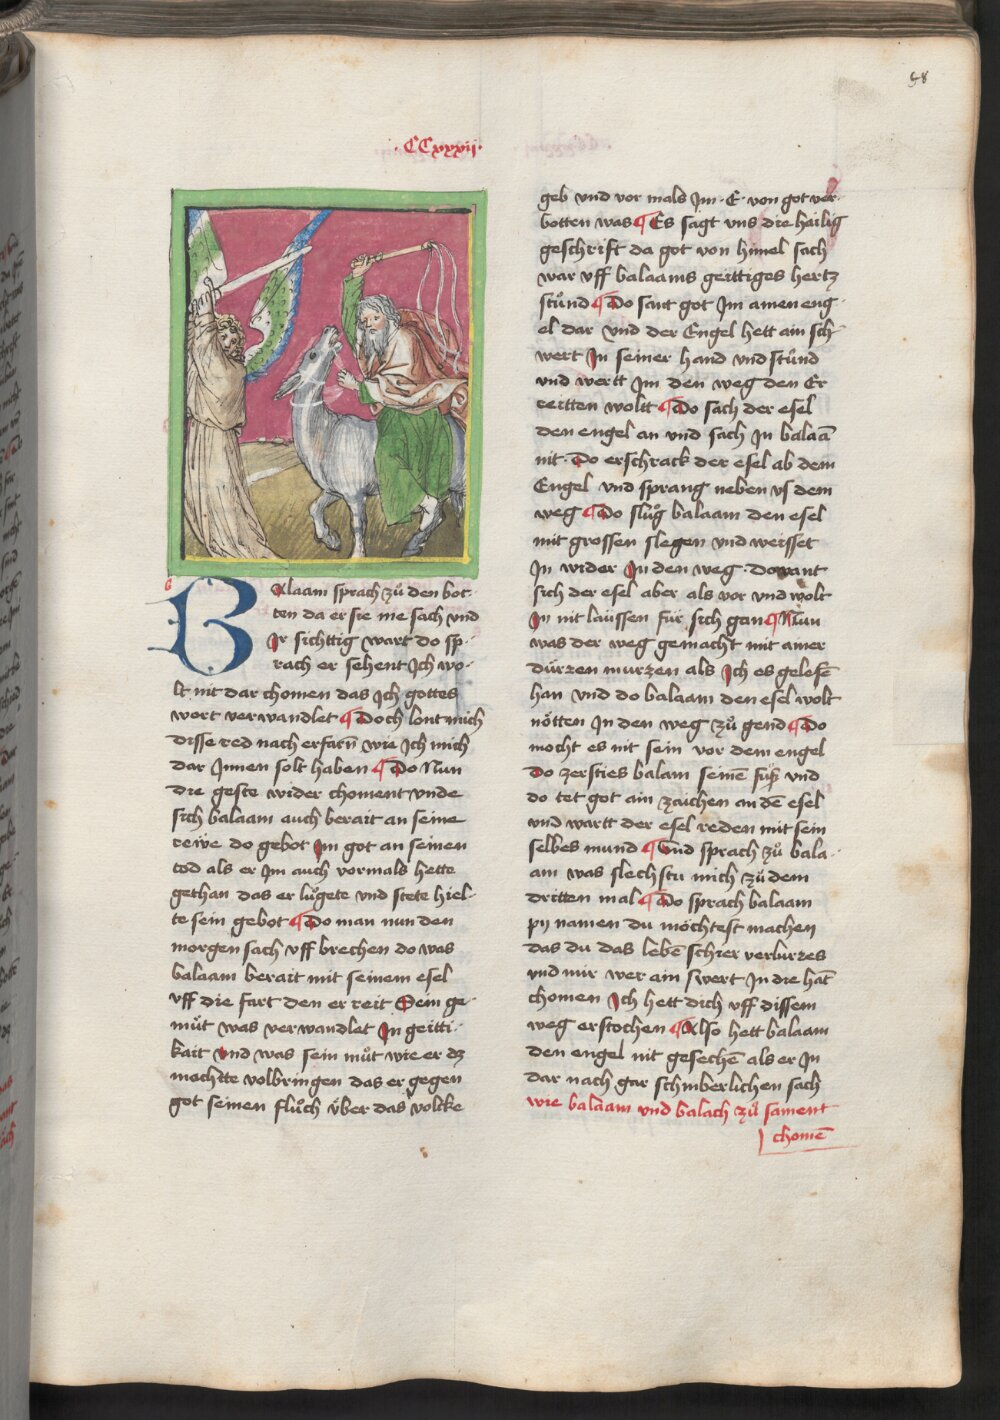 58
·CCxxxij·
Balaam sprach zů den bot-
ten da er sie nie sach und
Ir sichttig wart do sp-
rach er sehent Ich wo-
lt nit dar chomen das Ich gottes
wort verwandlet ¶ Doch lont mich
disse red nach erfarn wie Ich mich
dar Innen solt haben ¶ Do Nun
die geste wider choment unde
sich balaam auch berait an seine
reise do gebot Im got an seinen
tod als er Im auch vormals hette
gethan das er lůgete und stete hiel-
te sein gebot ¶ Do man nun den
morgen sach uff brechen do was
balaam berait mit seinem esel
uff die fart den er reit Sein ge-
můt was verwandlet In geitti-
kait und was sein můt wie er dz
mechtte volbringen das er gegen
got seinen flůch über das volcke
geb und vor mals Im · E · von got ver-
botten was ¶ Es sagt uns die hailig
geschrift da got von himel sach
war uff balaams geittiges hertz
stůnd ¶ Do sant got Im ainen eng-
el dar und der Engel hett ain sch-
wert In seiner hand und stůnd
und wertt Im den weg den Er
reitten woltt ¶ Do sach der esel
den engel an und sach In balaā
nit · Do erschrack der esel ab dem
Engel und sprang neben us dem
weg ¶ Do slůg balaam den esel
mit grossen slegen und weisset
In wider In den weg · Do want
sich der esel aber als vor und wolt
In nit laussen für sich gan ¶ Nun
was der weg gemacht mit ainer
dürren murzen als Ich es gelesē
han und do balaam den esel wolt
nötten In den weg zů gend ¶ Do
mocht es nit sein vor dem engel
Do zersties balam seinē fůß und
do tet got ain zaichen an dē esel
und wartt der esel reden mit sein
selbes mund ¶ Und sprach zů bala-
am was slechstu mich zů dem
dritten mal ¶ Do sprach balaam
py namen du möchtest machen
das du das lebē schier verlurzes
und mir wer ain swert In die hāt
chomen Ich hett dich uff dissem
weg erstochen ¶ Also hett balaam
den engel nit gesechē als er In
dar nach gar schinberlichen sach
wie balaam und balach zů sament
chomē